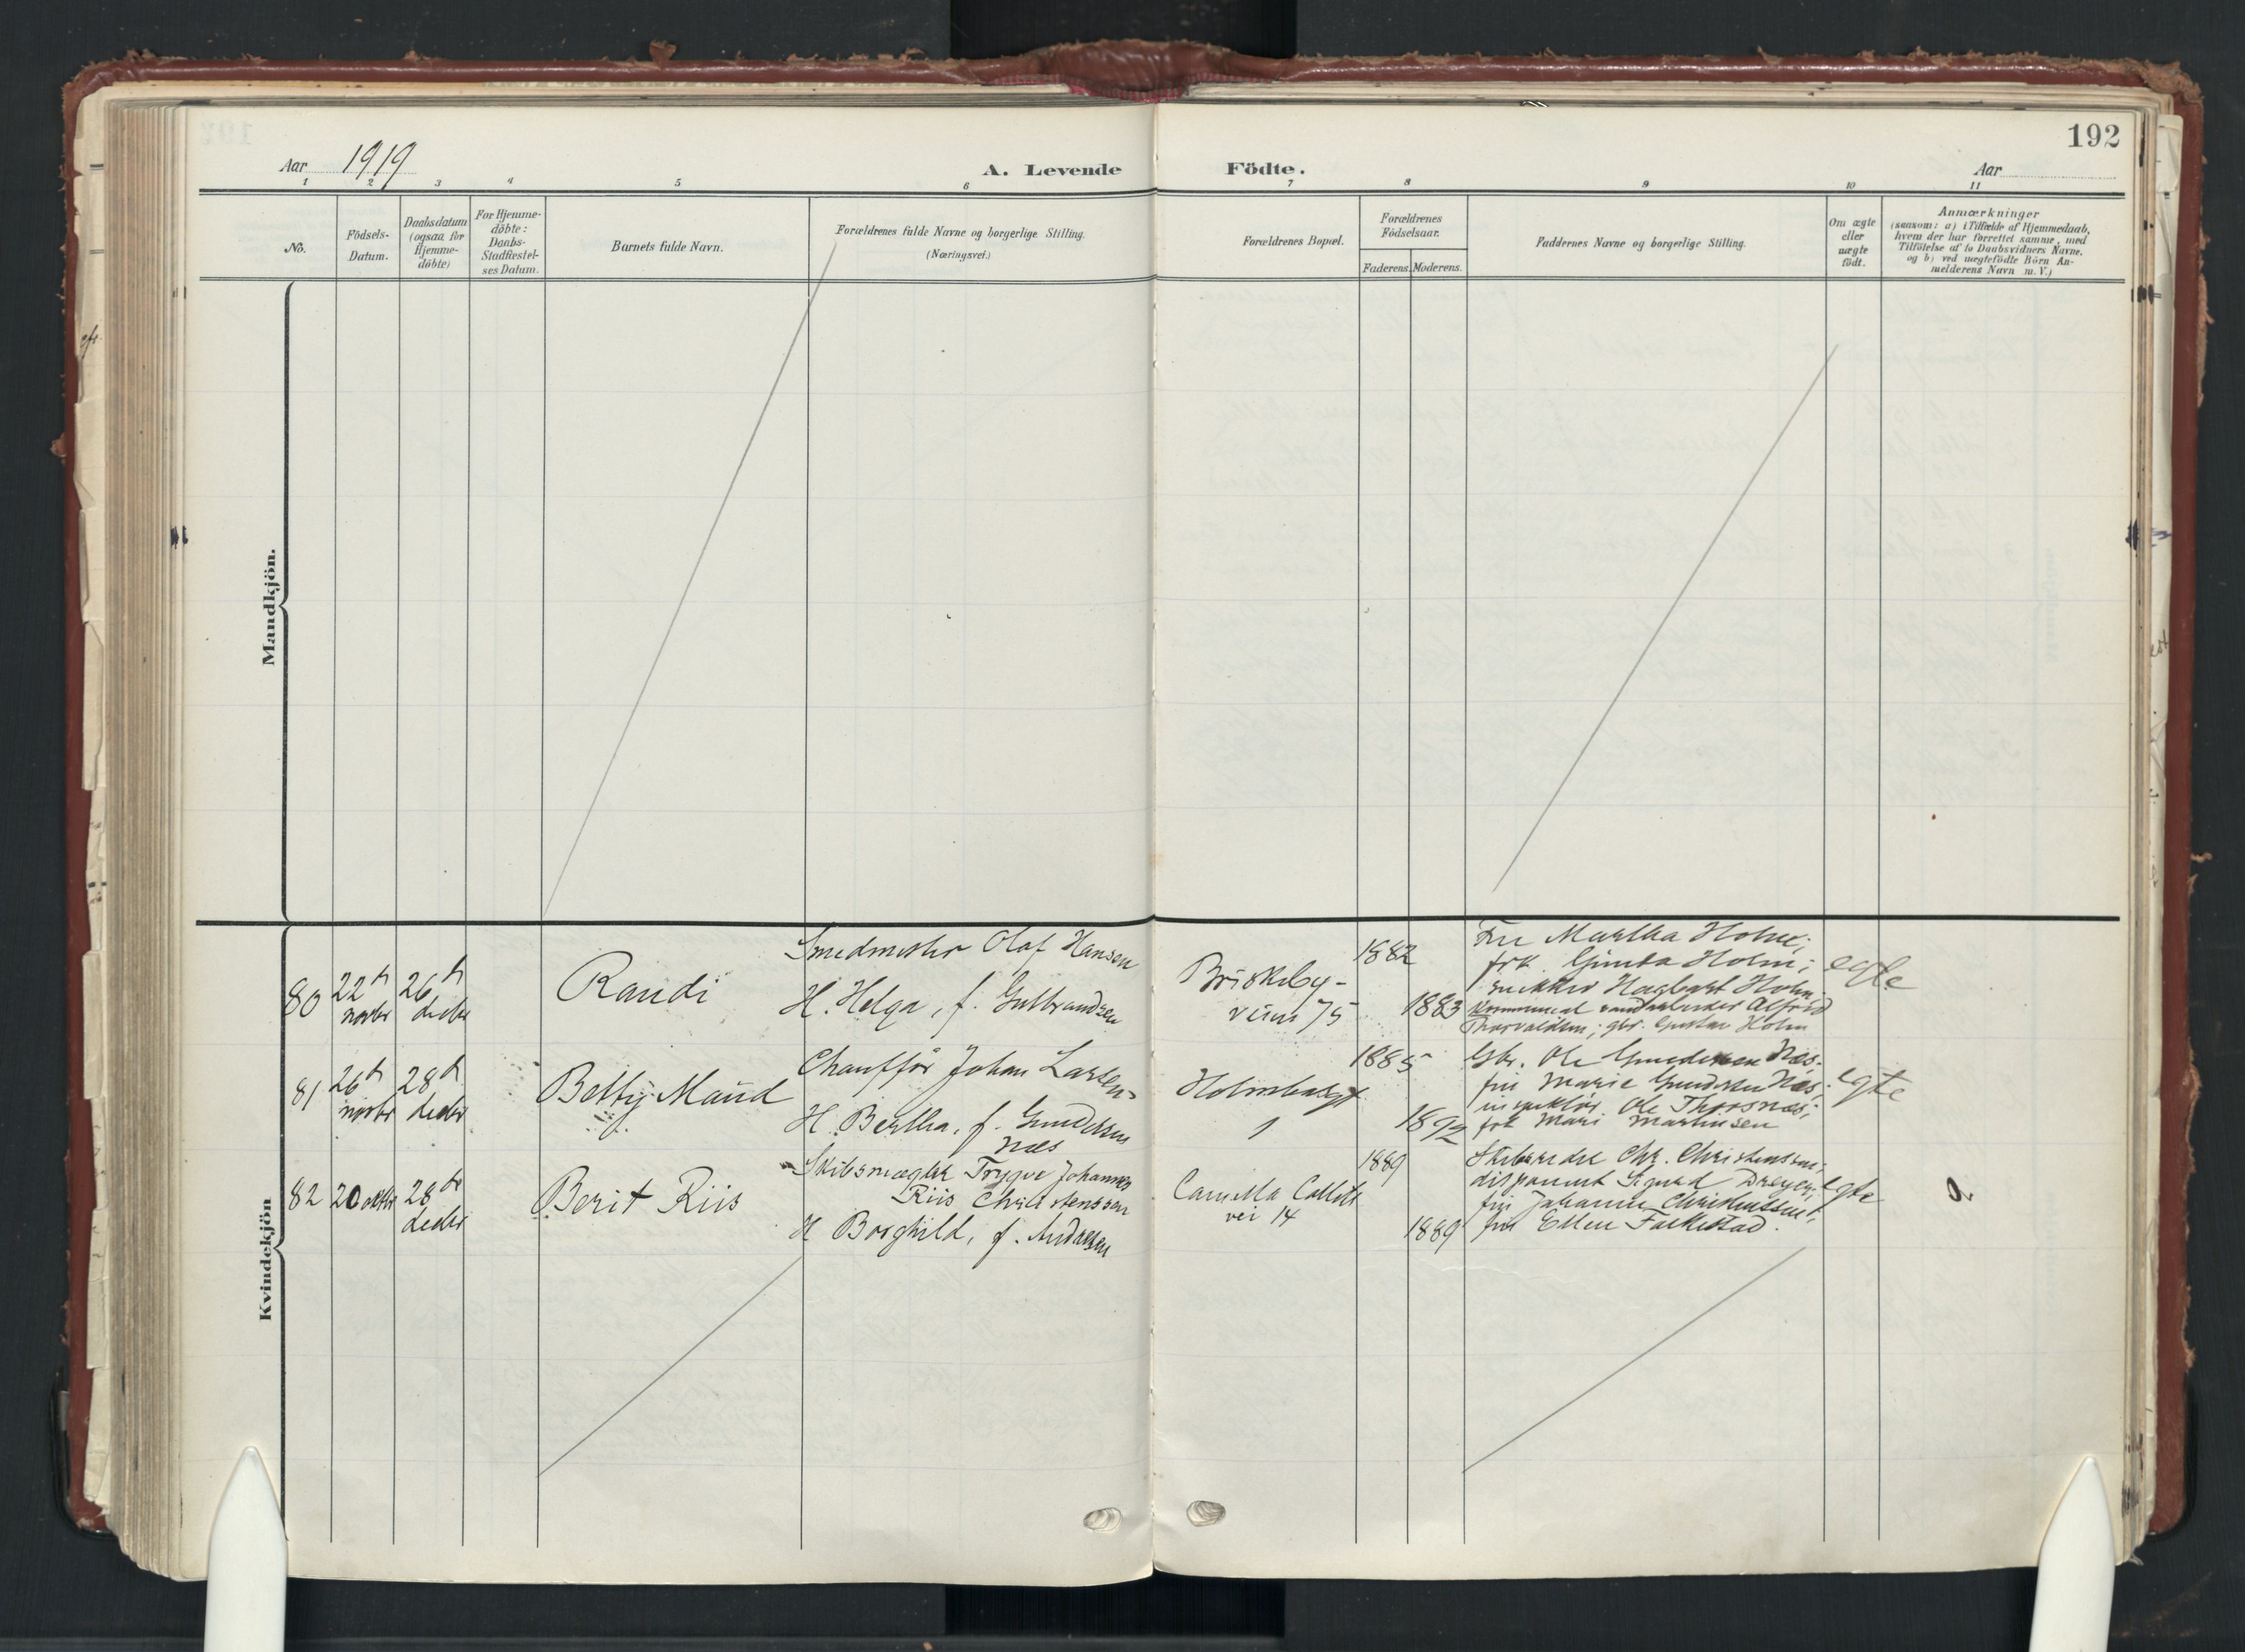 192
Aar 1919
A. Levende Födte.
Aar
1 2 3 4 5 6 7 8 9 10 11
No.
Födsels-
Datum.
Daabsdatum
(ogsaa for
Hjemme-
döbte)
For Hjemme-
döbte:
Daabs-
Stadfæstel-
ses Datum.
Barnets fulde Navn.
Forældrenes fulde Navne og borgerlige Stilling.
(Næringsvei.)
Forældrenes Bopæl.
Forældrenes
Födselsaar.
Faderens. Moderens.
Faddernes Navne og borgerlige Stilling.
Om ægte
eller
uægte
födt.
Anmærkninger
(saasom: a) i Tilfælde af Hjemmedaab,
hvem der har forrettet samme, med
Tilföielse af to Daabsvidners Navne.
og b) ved uægtefödte Börn An-
melderens Navn m. V.)
Mandkjön.
Kvindekjön
80
22de
novbr
26de
decbr
Randi
Smedmester Olaf Hansen
H. Helga, f. Gulbrandsen
Briskeby-
veien 75
1882
1883
Fru Martha Holm;
frk. Gunda Holm;
snekker Hagbart Holm
Thorvaldsen; gbr. Gustav Holm
egte
81
26de
novbr
28de
decbr
Betty Maud
Chauffør Johan Larsen
H. Bertha, f. Gundersen
Næs
Holmboesgt
1
1885
1892
Gbr. Ole Gundersen Næs;
fru Marie Gundersen Næs;
inspektör Ole Thorsnæs;
frk Mari Martinsen
egte
82
20 oktbr
28de
decbr
Berit Riis
Skibsmægler Trygve Johannes
Riis Christensen
H Borghild, f. Andresen
Camilla Colletts
vei 14
1889
1889
Skibsreder Chr. Christensen;
disponent Sigurd Dreyer;
fru Johanne Christensen;
fru Ellen Falkestad.
egte